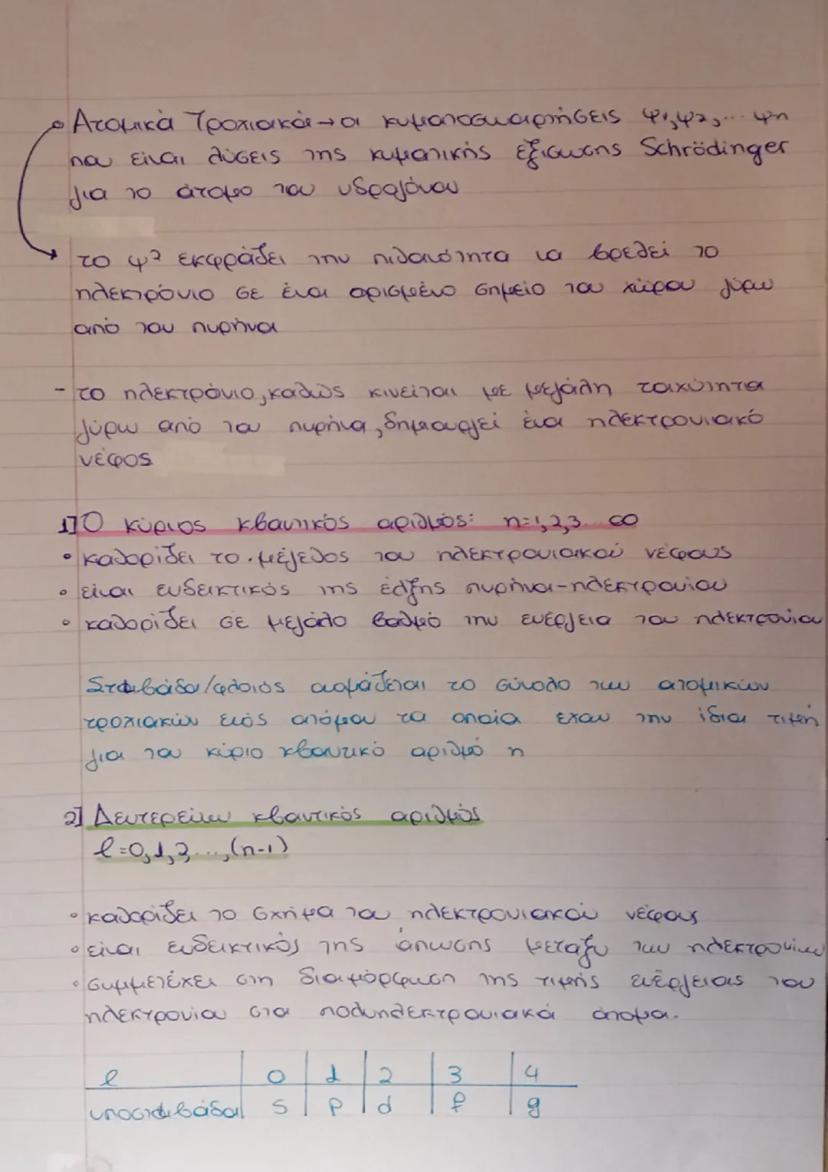 Ατομικά Τροχιακά → οι κυματοσυναρτήσεις ψ1, ψ2, ... ψn
που είναι λύσεις της κυματικής εξίσωσης Schrödinger
για το άτομο του υδρογόνου
το ψ² εκφράζει την πιθανότητα να βρεθεί το
ηλεκτρόνιο σε ένα ορισμένο σημείο του χώρου γύρω
από τον πυρήνα
- το ηλεκτρόνιο, καθώς κινείται με μεγάλη ταχύτητα
γύρω από τον πυρήνα, δημιουργεί ένα ηλεκτρονιακό
νέφος
1] Ο κύριος κβαντικός αριθμός: n=1,2,3... ∞
• καθορίζει το μέγεθος του ηλεκτρονιακού νέφους
• είναι ενδεικτικός της έλξης πυρήνα-ηλεκτρονίου
• καθορίζει σε μεγάλο βαθμό την ενέργεια του ηλεκτρονίου
Στιβάδα/φλοιός ονομάζεται το σύνολο των ατομικών
τροχιακών ενός ατόμου τα οποία έχουν την ίδια τιμή
για τον κύριο κβαντικό αριθμό n
2] Δευτερεύων κβαντικός αριθμός
l=0,1,2,...,(n-1)
• καθορίζει το σχήμα του ηλεκτρονιακού νέφους
• είναι ενδεικτικός της άπωσης μεταξύ των ηλεκτρονίων
• συμμετέχει στη διαμόρφωση της τιμής ενέργειας του
ηλεκτρονίου στα πολυηλεκτρονιακά άτομα.
l 0 1 2 3 4
υποστιβάδα s p d f g